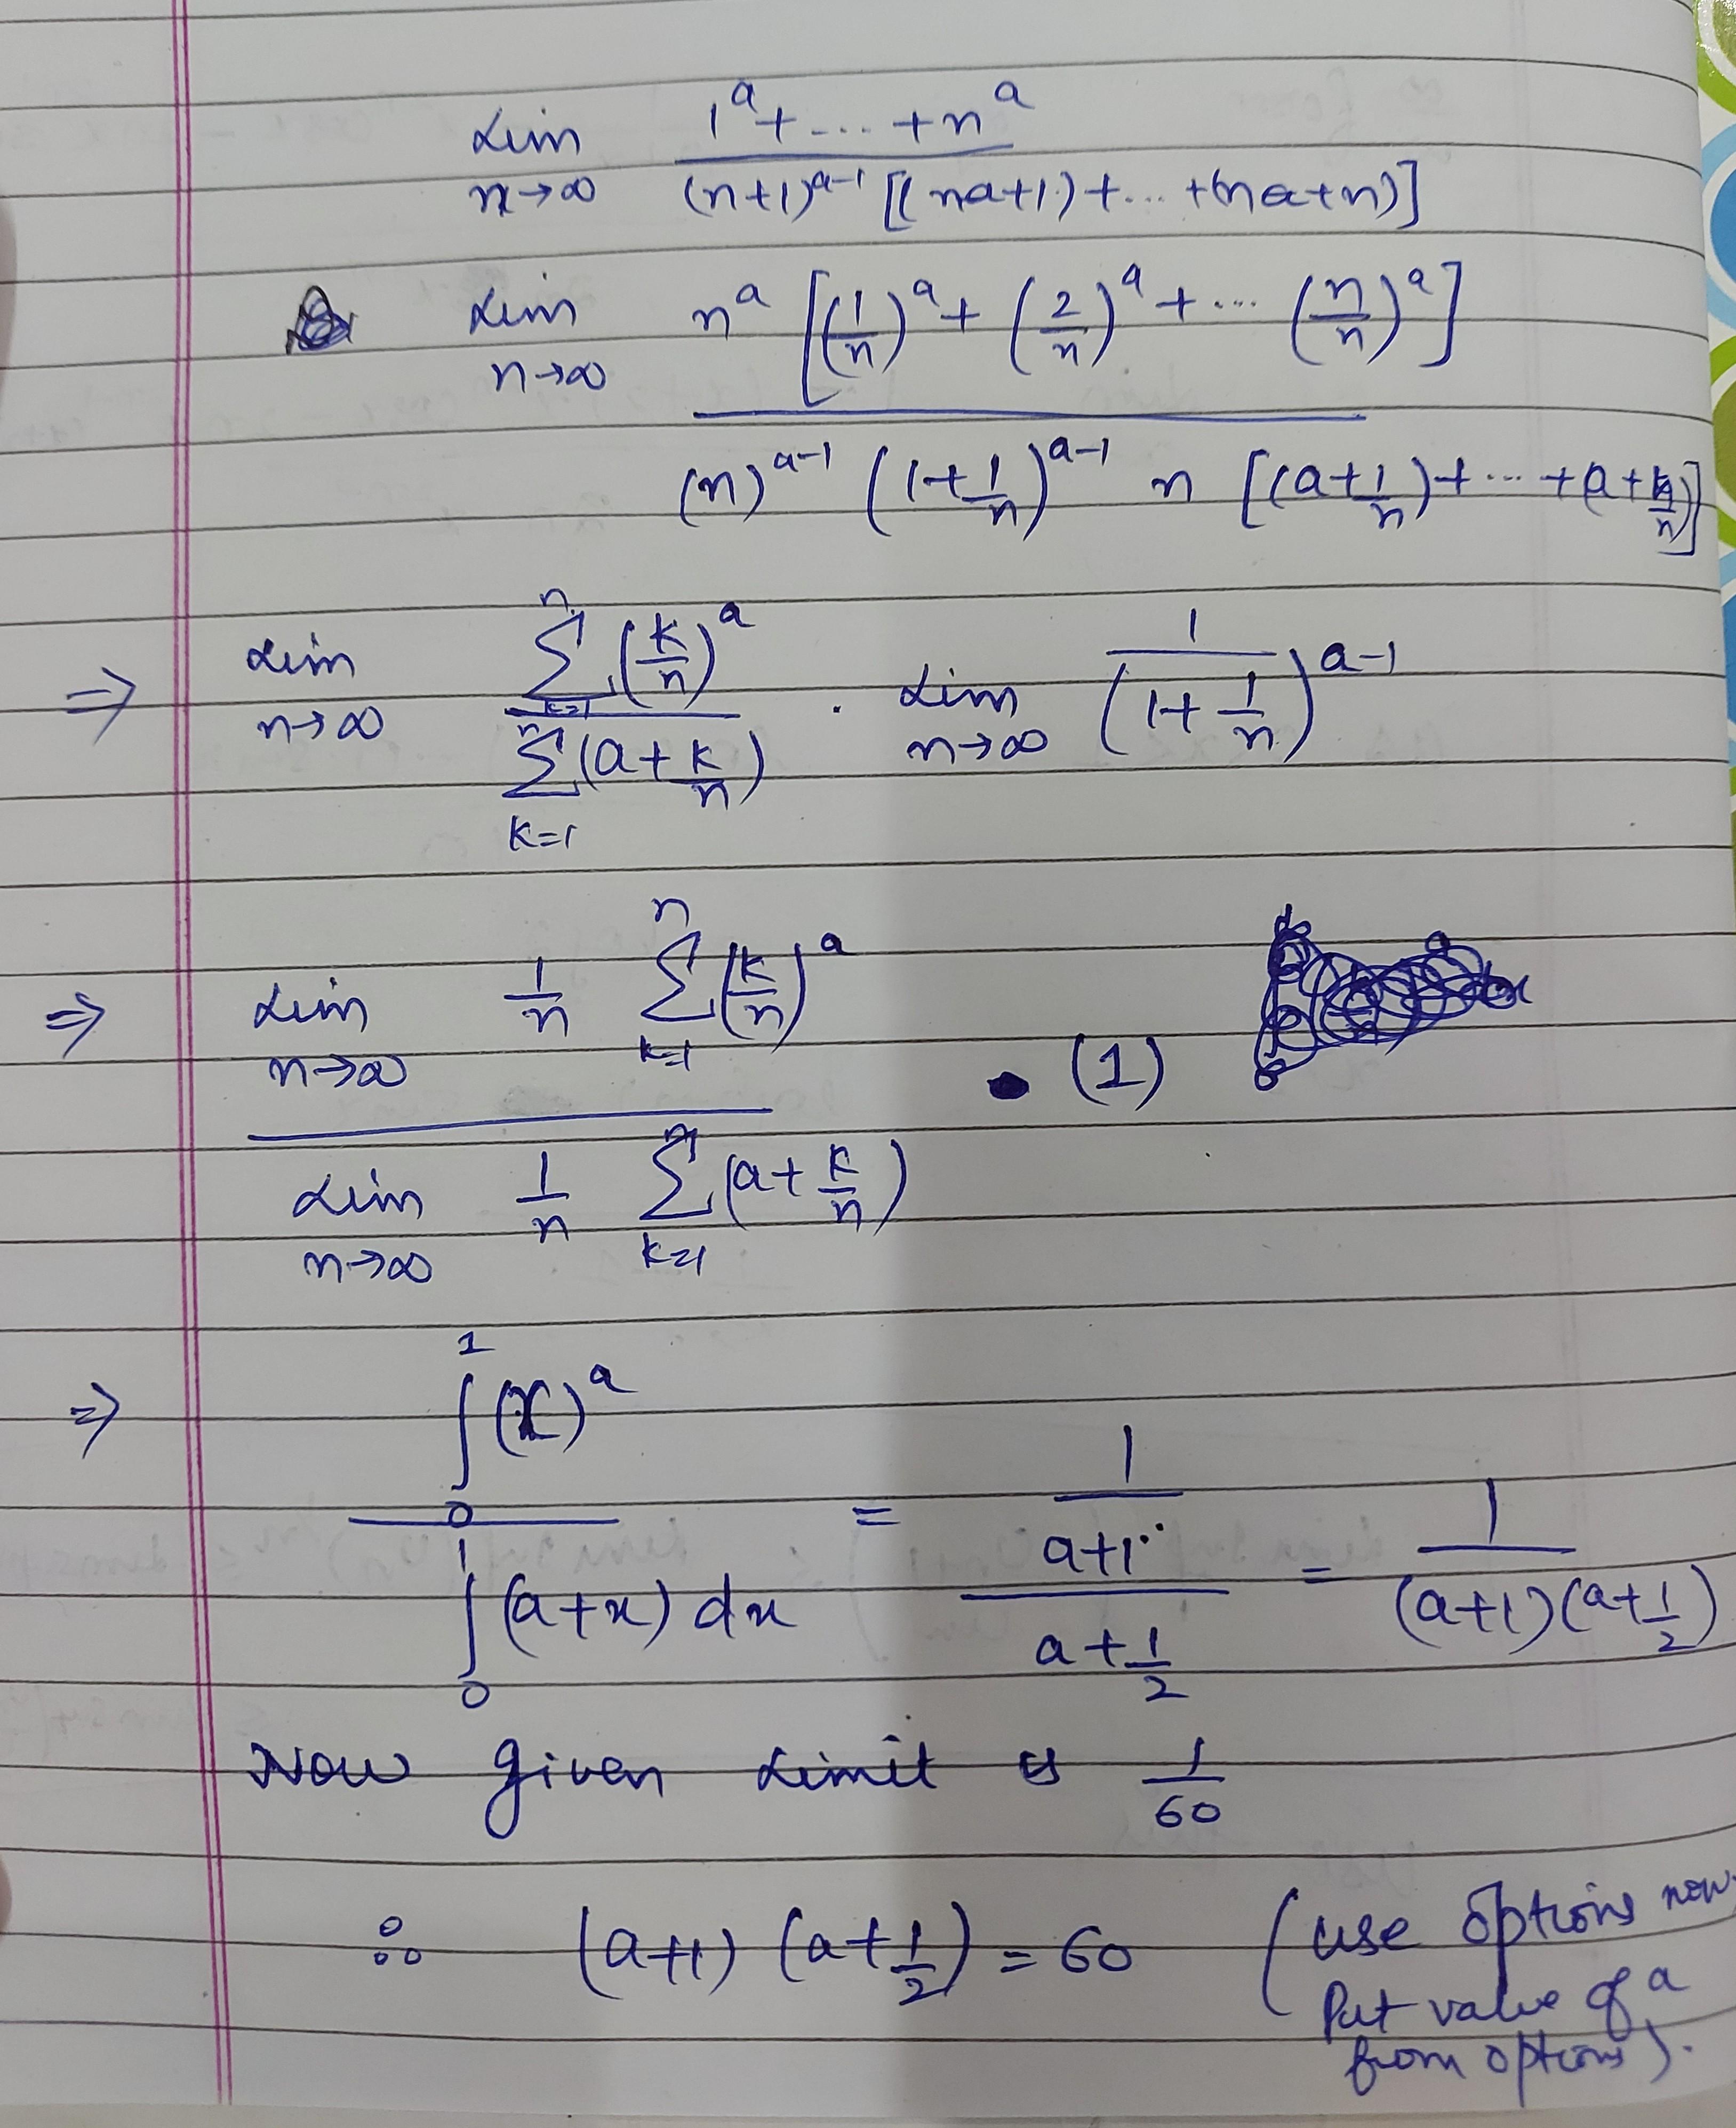 Lim 1^a + .... + n^a
n→∞ (n+1)^{a-1} [(na+1) + ... + (na+n)]
Lim n^a [(1/n)^a + (2/n)^a + .... (n/n)^a]
n→∞
(n)^{a-1} (1+1/n)^{a-1} n [(a+1/n) + ... + (a+n/n)]
⇒ Lim n→∞ ∑_{k=1}^{n} (k/n)^a / ∑_{k=1}^{n} (a+k/n) . Lim n→∞ 1/(1+1/n)^{a-1}
⇒ Lim n→∞ 1/n ∑_{k=1}^{n} (k/n)^a
• (1)
Lim n→∞ 1/n ∑_{k=1}^{n} (a+k/n)
⇒ ∫_0^1 (x)^a / ∫_0^1 (a+x) dx = (1/(a+1)) / (a+1/2) = 1/((a+1)(a+1/2))
Now given Limit is 1/60
∴ (a+1) (a+1/2) = 60 (use options now.
Put value of a
from options).